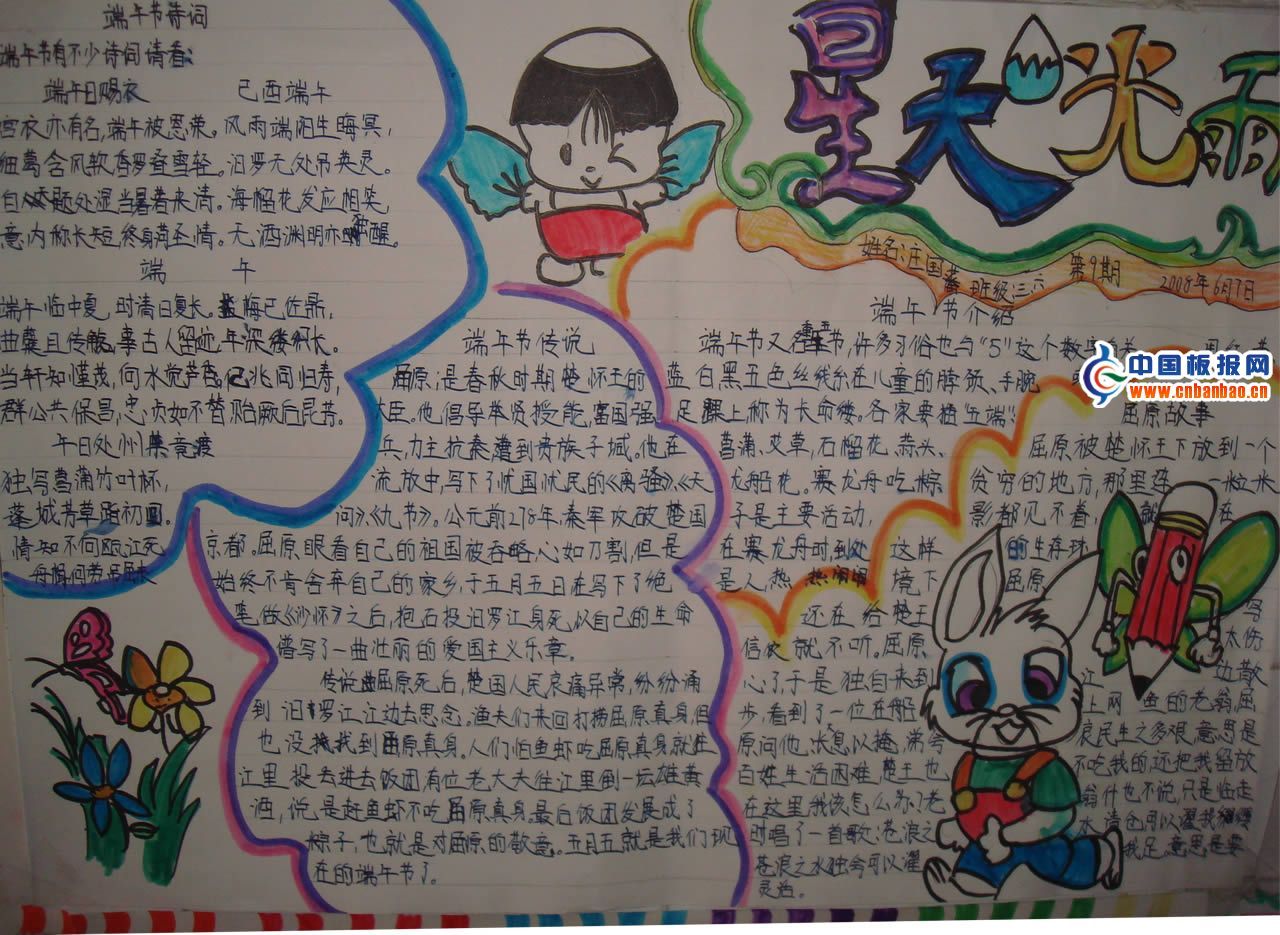 端午节诗词
端午节有不少诗词请看:
端午日赐衣 己酉端午
宫衣亦有名,端午被恩荣。风雨端阳生晦冥,
细葛含风软香罗叠雪轻。汨罗无处吊英灵。
自天题处湿当暑著来清。海榴花发应相笑,
意内称长短,终身荷圣情。无酒渊明亦独醒。
端 午
端午临中夏,时清日复长。盐梅已佐鼎,
曲蘖且传觞,事古人留迹,年深缕积长。
当轩知槿茂,向水觉芦香。亿兆同归寿,
群公共保昌,忠贞如不替贻厥后昆芳。
午日处州禁竞渡
独写菖蒲竹叶杯,
蓬城芳草踏初回。
情知不向瓯江死
舟楫何劳吊屈
端午节传说
屈原,是春秋时期楚怀王的
大臣。他倡导举贤授能,富国强
兵,力主抗秦遭到贵族子城。他在
流放中,写下了忧国忧民的《离骚》、《天
问》、《九节》。公元前278年,秦军攻破楚国
京都。屈原眼看自己的祖国被吞略,心如刀割,但是
始终不肯舍弃自己的家乡,于五月五日在写下了绝
笔做《沙怀》之后,抱石投汨罗江身死,以自己的生命
谱写了一曲壮丽的爱国主义乐章。
传说屈原死后,楚国人民哀痛异常,纷纷涌
到汨罗江江边去思念。渔夫们来回打捞屈原真身,但
也没找到屈原真身。人们怕鱼虾吃屈原真身就往
江里投去进去饭团有位老大夫往江里倒一坛雄黄
酒,说是赶鱼虾不吃屈原真身,最后饭团发展成了
粽子,也就是对屈原的敬意。五月五就是我们现
在的端午节了。
星天光雨
姓名:庄国蕃 班级:三六 第9期 2008年6月7日
端午节介绍
端午节又名重五节,许多习俗也与"5"这个数
蓝白黑五色丝线系在儿童的脖颈、手腕
足踝上称为长命缕。各家要植"五端":
菖蒲、艾草,石榴花、蒜头、
龙船花。赛龙舟吃粽
子是主要活动,
在赛龙舟时到处
是人热热闹闹
屈原故事
屈原被楚怀王下放到一个
贫穷的地方,那里连一粒米
影都见不着,就在
这样的生存环
境下屈原
还在给楚王写
信使就不听。屈原太伤
心了于是独自来到江边散
步,看到了一位在船上网鱼的老翁,屈
原问他,长息以掩,满 哀民生之多艰,意思是
百姓生活困难,楚王也不吃我的,还把我留放
在这里我该怎么办?老翁什也不说,只是临走
时唱了一首歌:苍浪之水清 可以濯我
苍浪之水独 可以濯我足。意思是要
灵活。
中国板报网
www.cnbanbao.cn